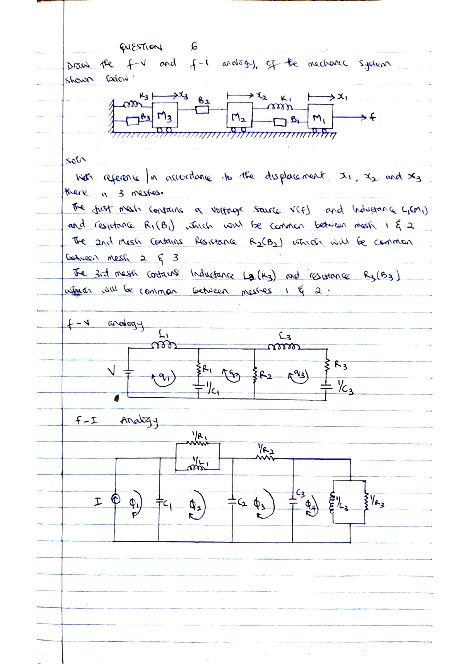 QUESTION 6
Draw the f-v and f-i analogy, of the mechanic system
shown below.
K3 x3 B2 x2 K1 x1
B3 M3 M2 B1 M1 f
soln
With reference / in accordance to the displacement x1, x2 and x3
there is 3 meshes.
The first mesh contains a voltage source V(f) and inductance L1(M1)
and resistance R1(B1) which will be common between mesh 1 & 2
The 2nd mesh contains Resistance R2(B2) which will be common
between mesh 2 & 3
The 3rd mesh contains Inductance L3(K3) and resistance R3(B3)
which will be common between meshes 1 & 2.
f-v analogy
L1 L3
V q1 R1 q2 R2 q3 R3
1/C1 1/C3
f-I Analogy
1/R1
1/L1 1/R2
I Φ1 C1 Φ2 C2 Φ3 C3 Φ4 1/L3 1/R3